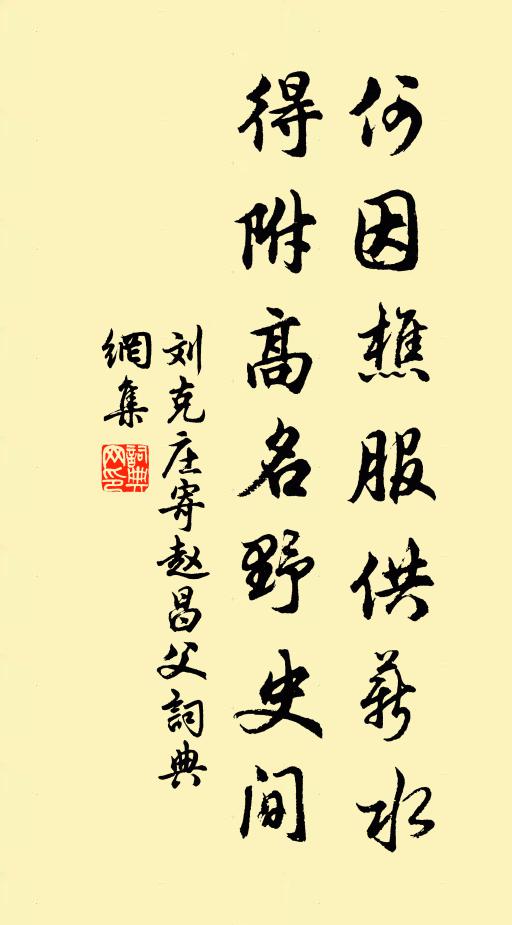 何因樵服供薪水
得附高名野史间
刘克庄寄赵昌父词典
網集
詞典網印